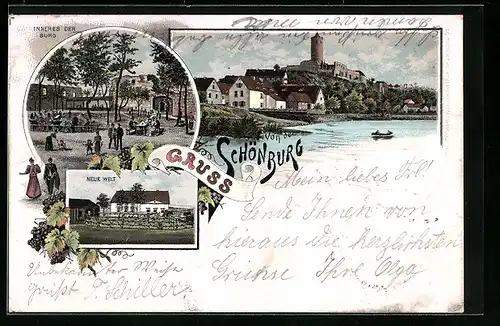 INNERES DER
BURG
GRUSS
VON DER
SCHÖNBURG
NEUE WELT
Mein liebes Frl.
Sende Ihnen von
hieraus die herzlichsten
Grüsse Ihre Olga
Unbekannter Weise
grüßt F. Schiller